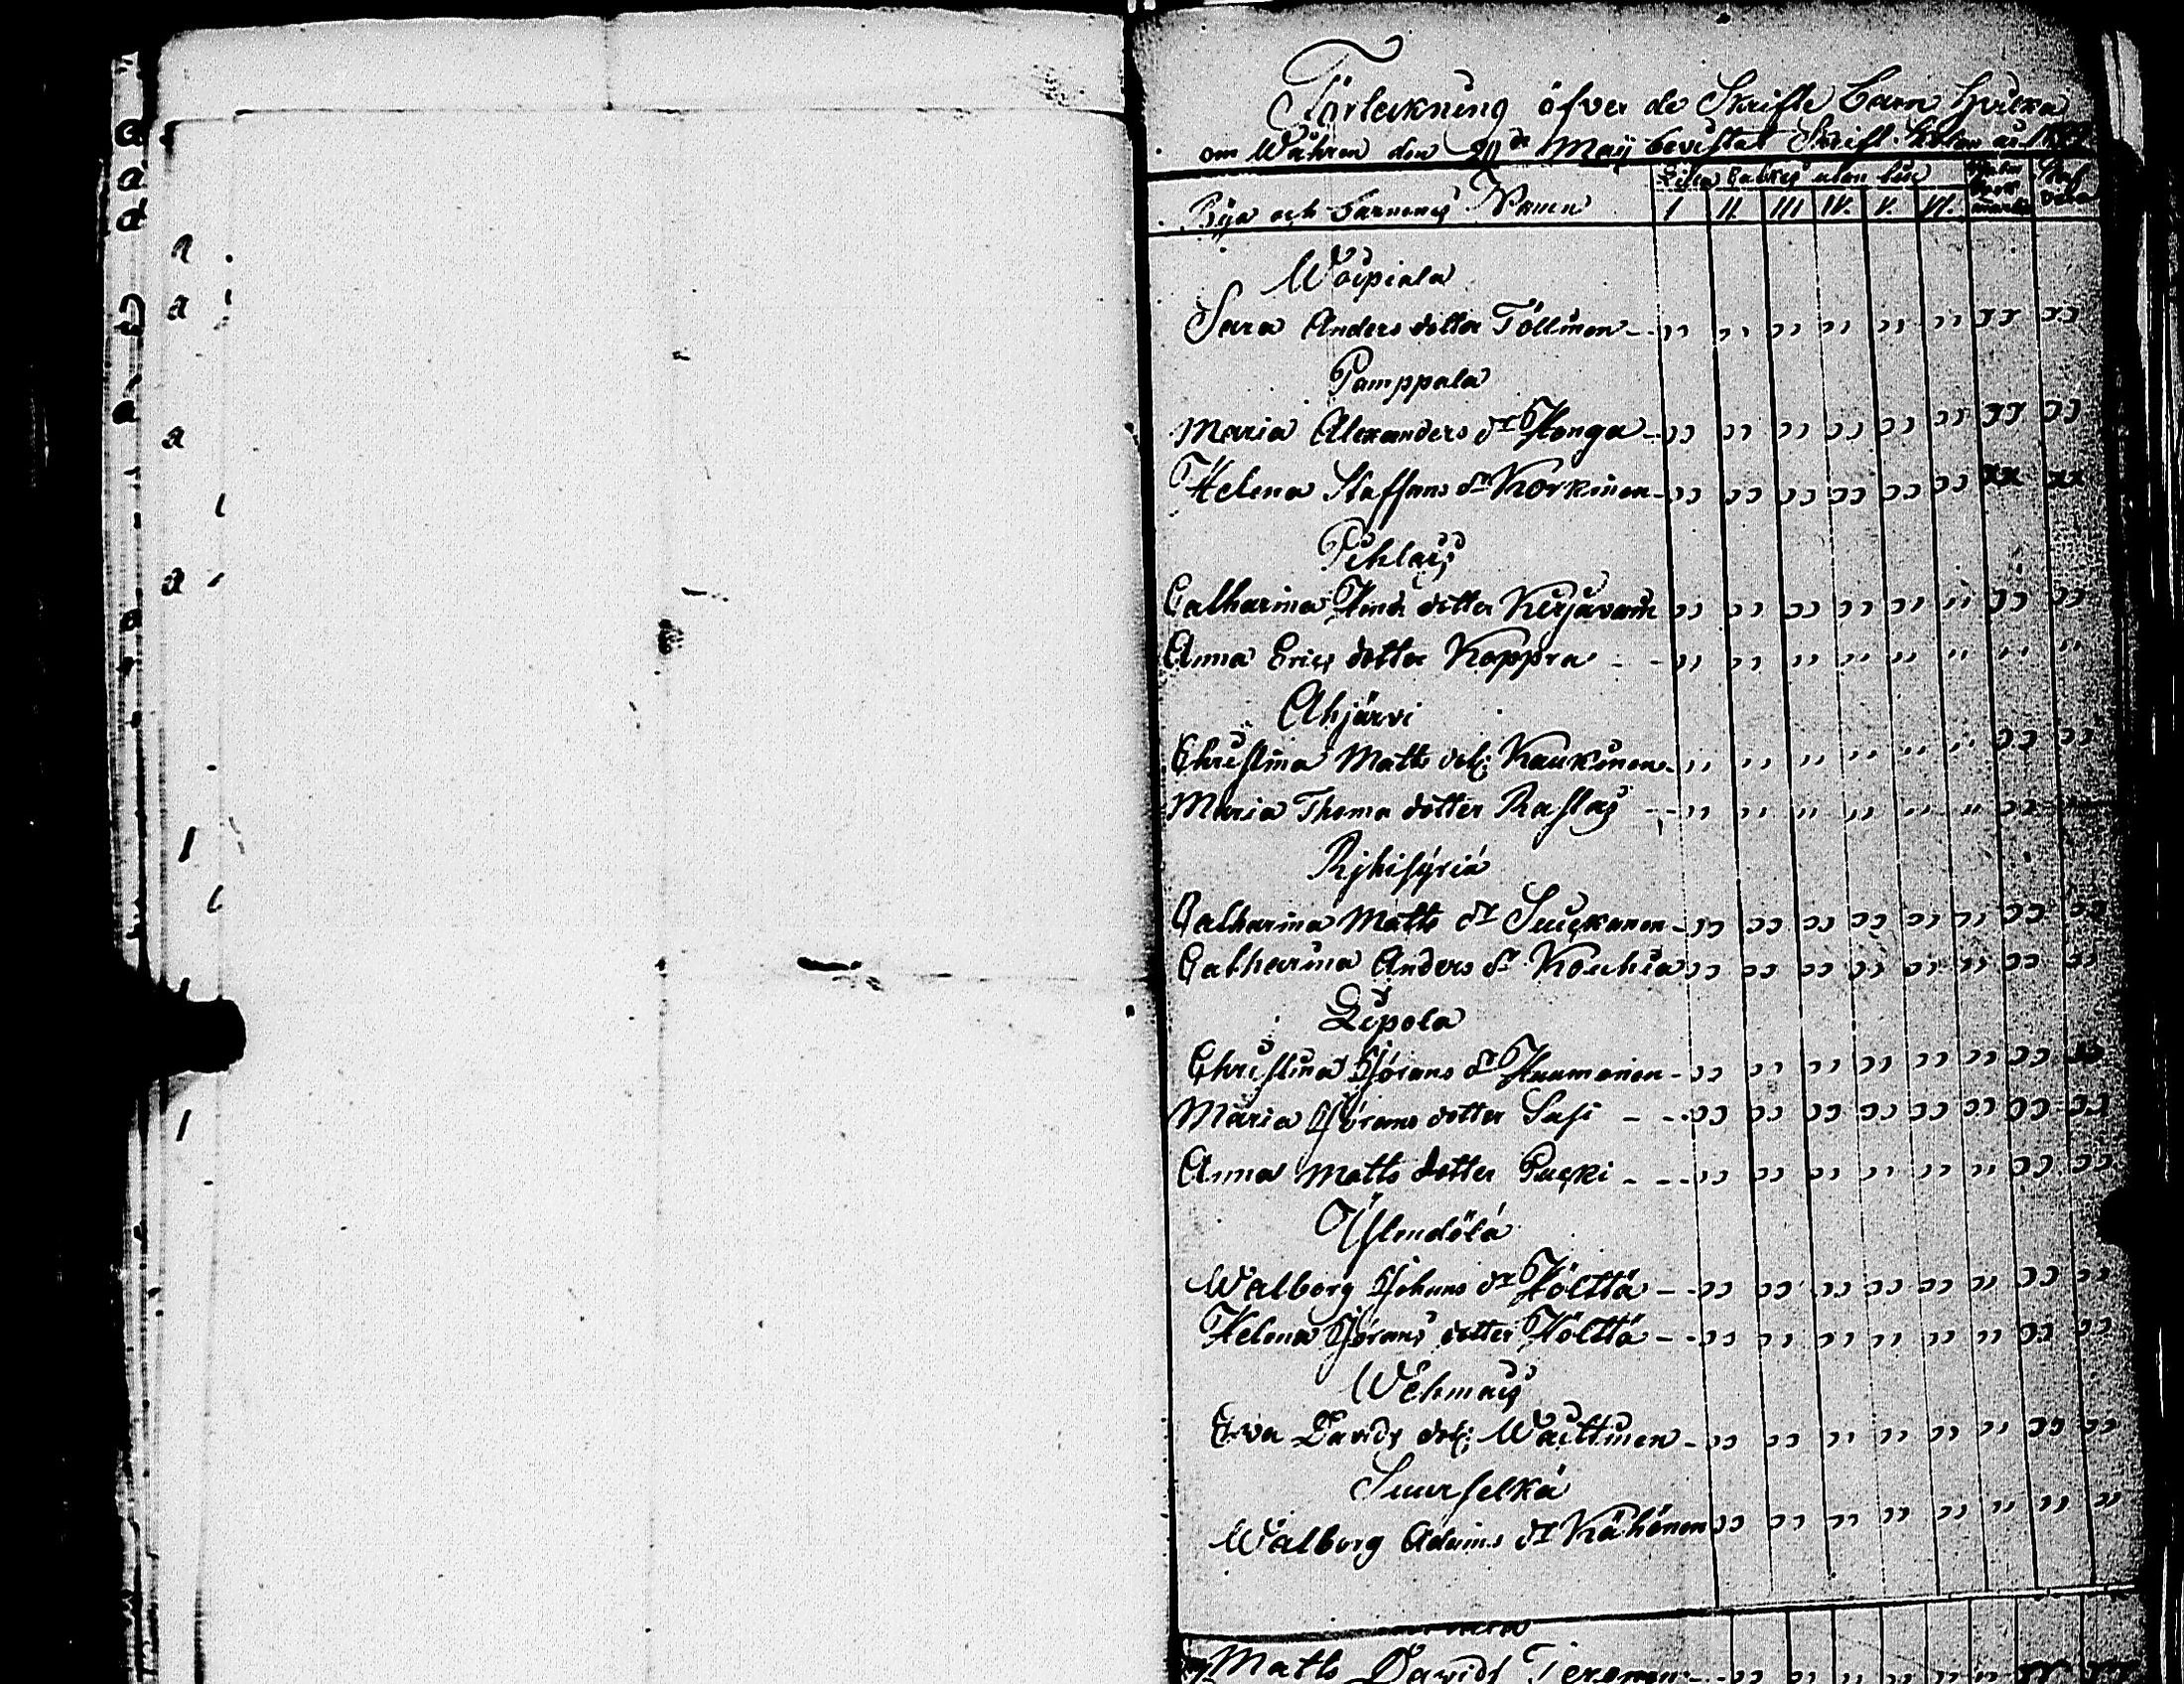 Förteckning öfver de Skrifte Barn hvilka
om Wåhren den 20de Maij bevistat Skrift Skolan
Lilla Catkes utan bok
Bya och Barnens Namn I II. III IV. V. VI.
Woipiala
Sara Anders dotter Töllinen - " " " " " "
Pamppala
Maria Alexanders dr Honga - " " " " " "
Helena Staffans dr Korkinen - " " " " " "
Pihlais
Catharina Hind: dotter Kirjavain " " " " " "
Anna Erics dotter Koppra - - " " " " " " " "
Ahjärvi
Christina Matts dot: Kaukinen - " " " " " "
Maria Thoma dotter Rastas - - " " " " " "
Rjhisyriä
Catharina Matts dr Suickanen - " " " " " "
Catharina Anders dr Kouhia " " " " " "
Lipola
Christina Görans dr Haamanen - " " " " " "
Maria Görans dotter Susi - - " " " " " "
Anna Matts dotter Pucki - - - " " " " " "
Yslendölä
Walborg Johans dr Hölttä - - " " " " " "
Helena Görans dotter Hölttä - - " " " " " "
Wehmais
Eva Davids dot: Waittinen - " " " " " "
Suurselkä
Walborg Adams dr Kähönen " " " " " " " "
Matts Davids